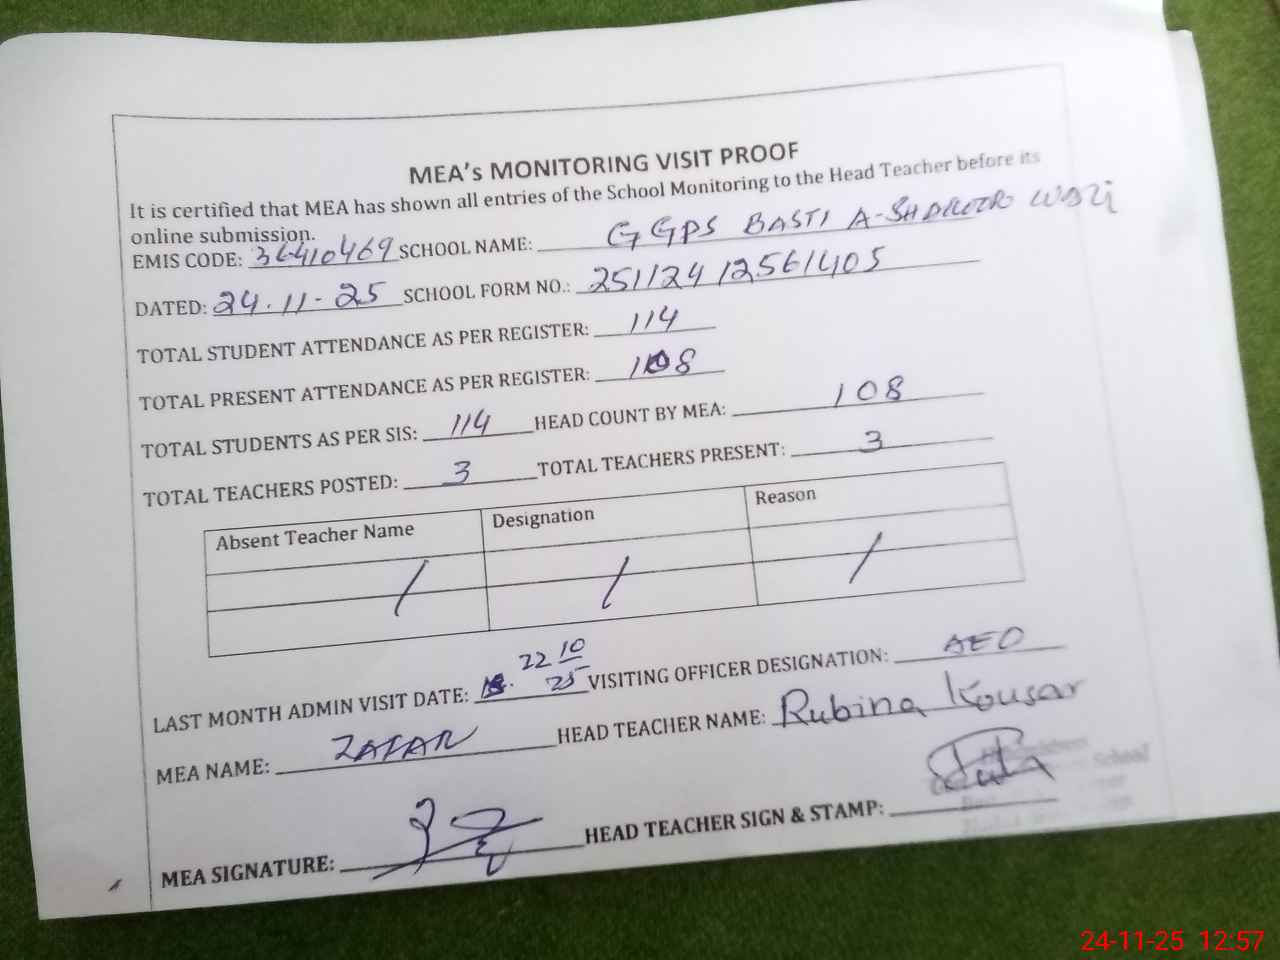 MEA's MONITORING VISIT PROOF
It is certified that MEA has shown all entries of the School Monitoring to the Head Teacher before its
online submission.
EMIS CODE: 36410469 SCHOOL NAME: GGPS BASTI A-
DATED: 24.11-25 SCHOOL FORM NO.: 251124 12561405
TOTAL STUDENT ATTENDANCE AS PER REGISTER: 114
TOTAL PRESENT ATTENDANCE AS PER REGISTER: 108
TOTAL STUDENTS AS PER SIS: 114 HEAD COUNT BY MEA: 108
TOTAL TEACHERS POSTED: 3 TOTAL TEACHERS PRESENT: 3
Absent Teacher Name Designation Reason
/ / /
LAST MONTH ADMIN VISIT DATE: 22 10 25 VISITING OFFICER DESIGNATION: AEO
MEA NAME: ZAFAR HEAD TEACHER NAME: Rubina Kousar
MEA SIGNATURE: HEAD TEACHER SIGN & STAMP:
School
24-11-25 12:57